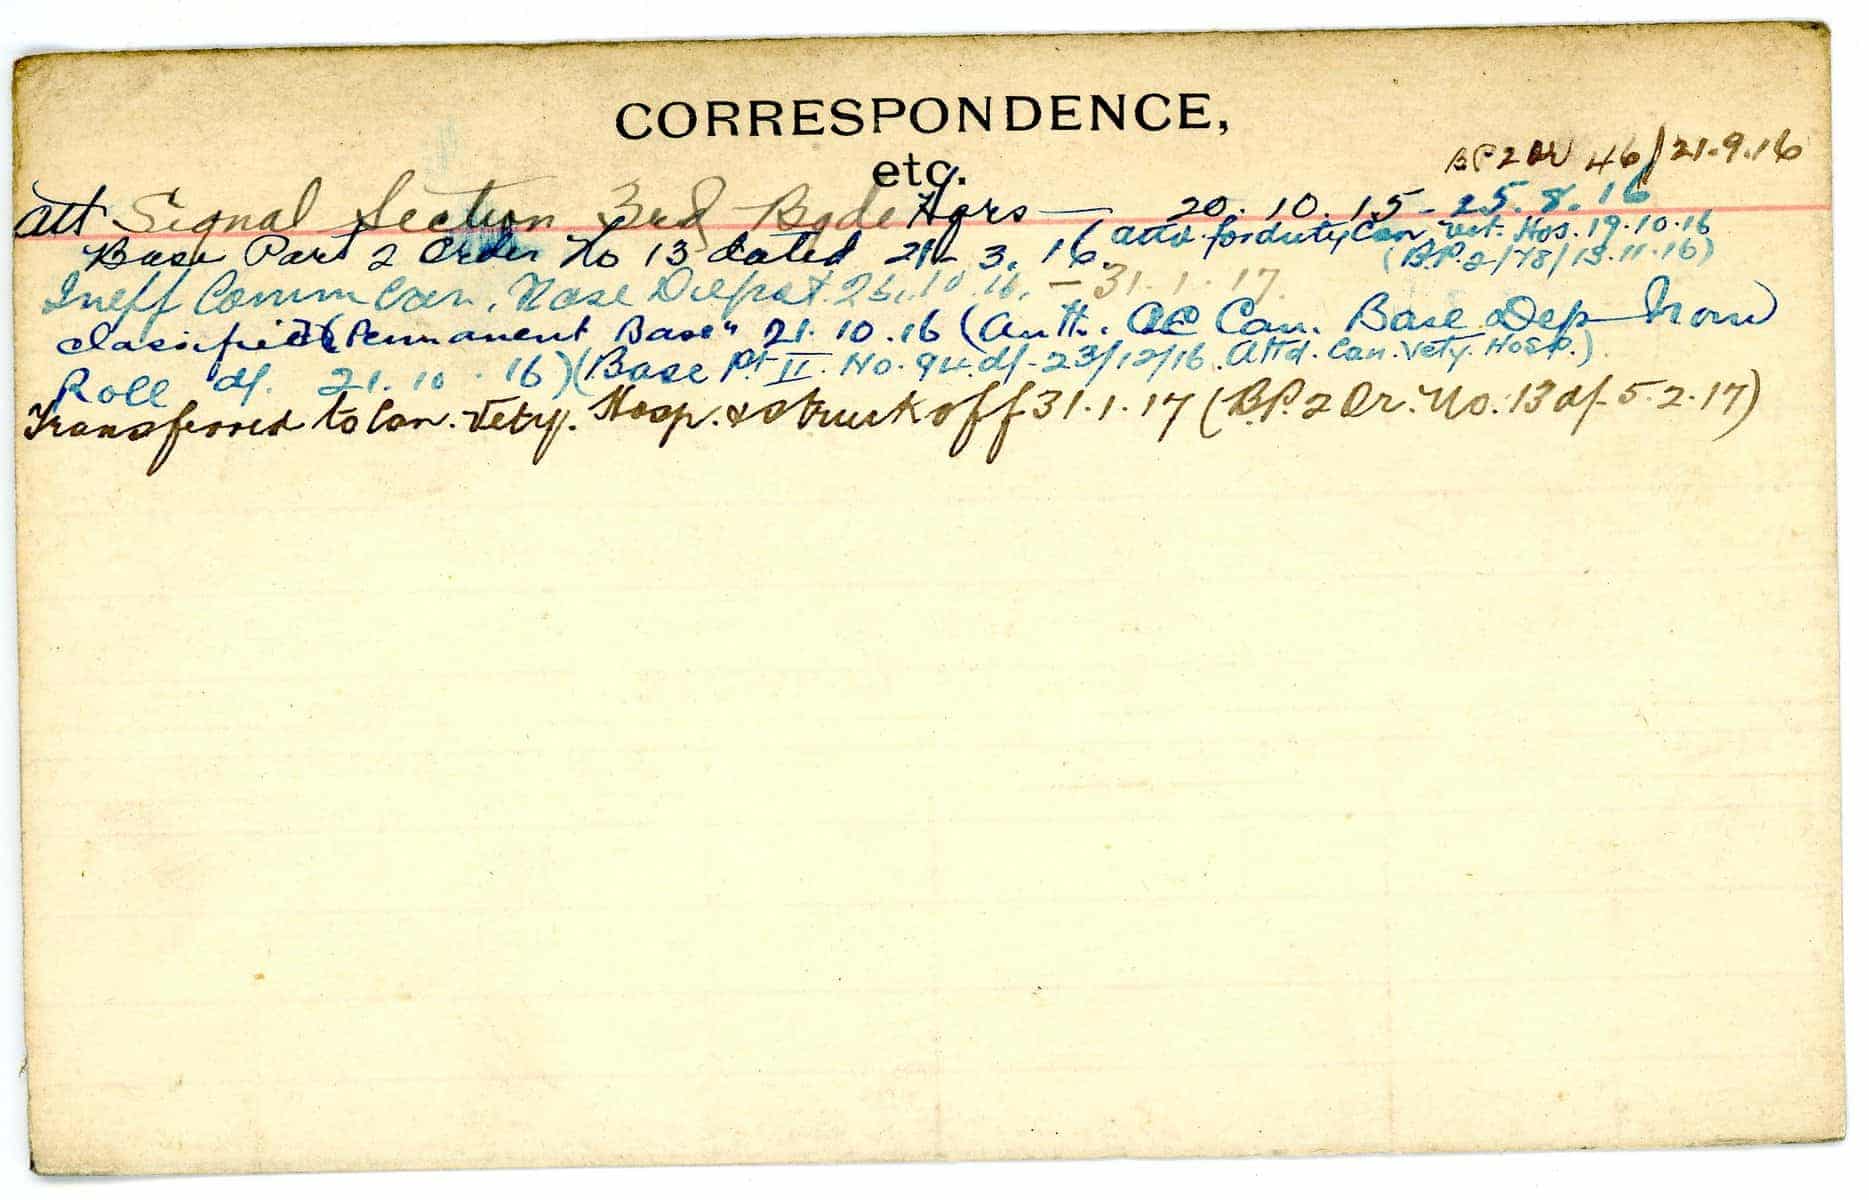 CORRESPONDENCE,
etc.
BP2 Or 46/21.9.16
att Signal Section 3rd Bgde Hqrs — 20.10.15 - 25.8.16
Base Part 2 Order No 13 dated 21-3.16. attd for duty Can Vet. Hos. 19.10.16
(B.P.2/78/13.11.16)
Ineff Comm Can. Base Depot 10.16. - 31.1.17.
classified "Permanent Base" 21.10.16 (Auth. Can. Base Dep Nom
Roll d/. 21.10.16) (Base Pt II. No. 94 d/- 23/12/16. Attd. Can. Vety. Hosp.)
Transferred to Can. Vety. Hosp. & struck off 31.1.17 (B.P.2 Or. No. 13 d/- 5.2.17)